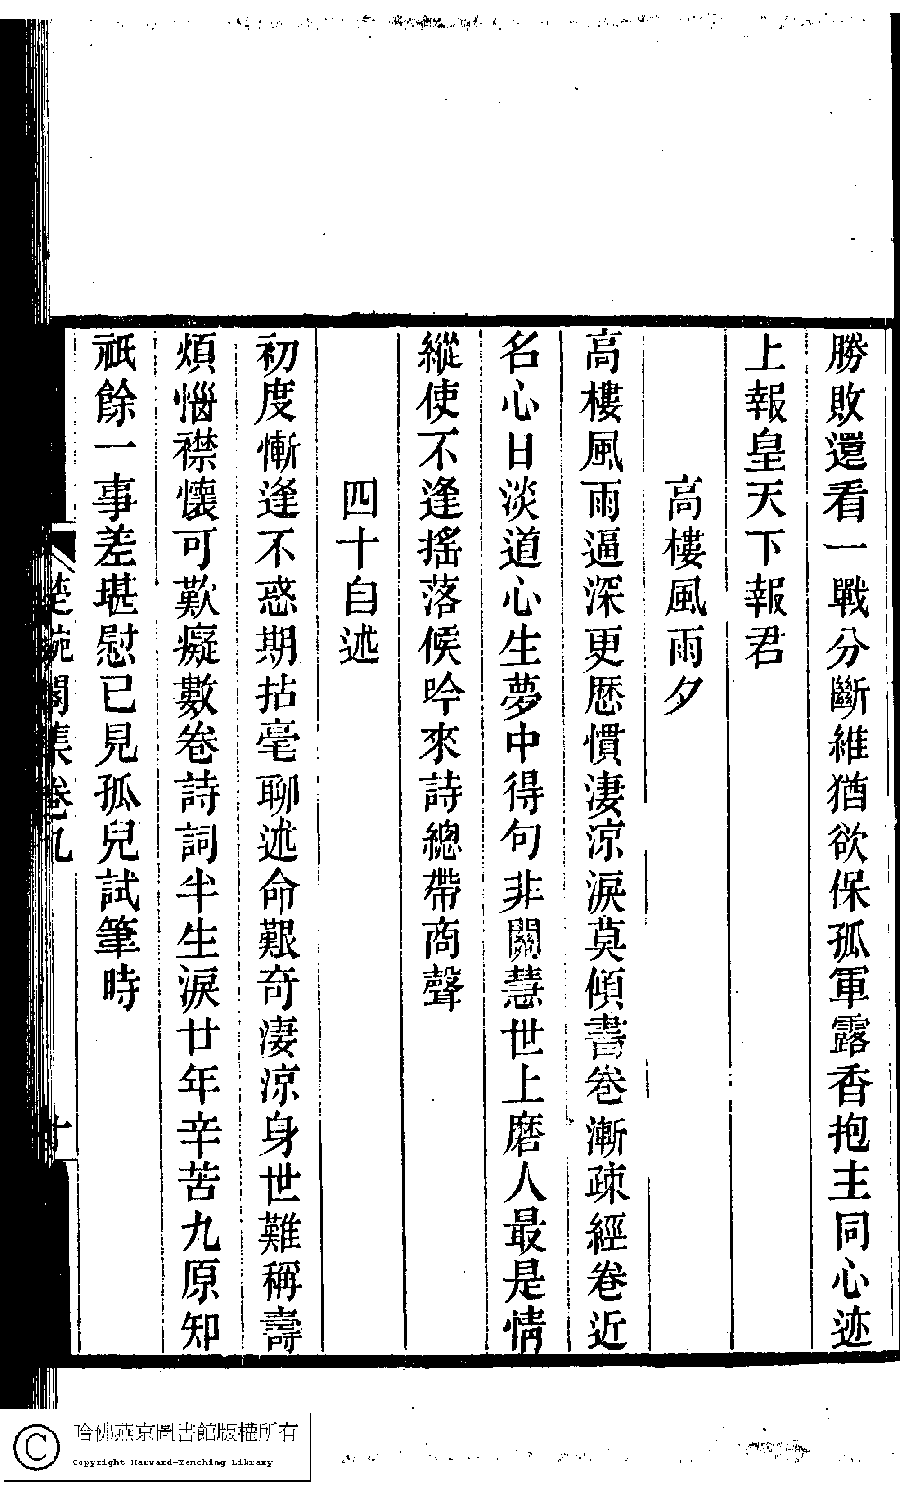 勝敗還看一戰分斷維猶欲保孤軍露香抱主同心迹
上報皇天下報君
高樓風雨夕
高樓風雨逼深更歷慣淒涼淚莫傾書卷漸疎經卷近
名心日淡道心生夢中得句非關慧世上磨人最是情
縱使不逢搖落候吟來詩總帶商聲
四十自述
初度慚逢不惑期拈毫聊述命艱奇淒涼身世難稱壽
煩惱襟懷可歎癡數卷詩詞半生淚廿年辛苦九原知
祇餘一事差堪慰已見孤兒試筆時
閣集卷九
十
哈佛燕京圖書館版權所有
Copyright Harvard-Yenching Library